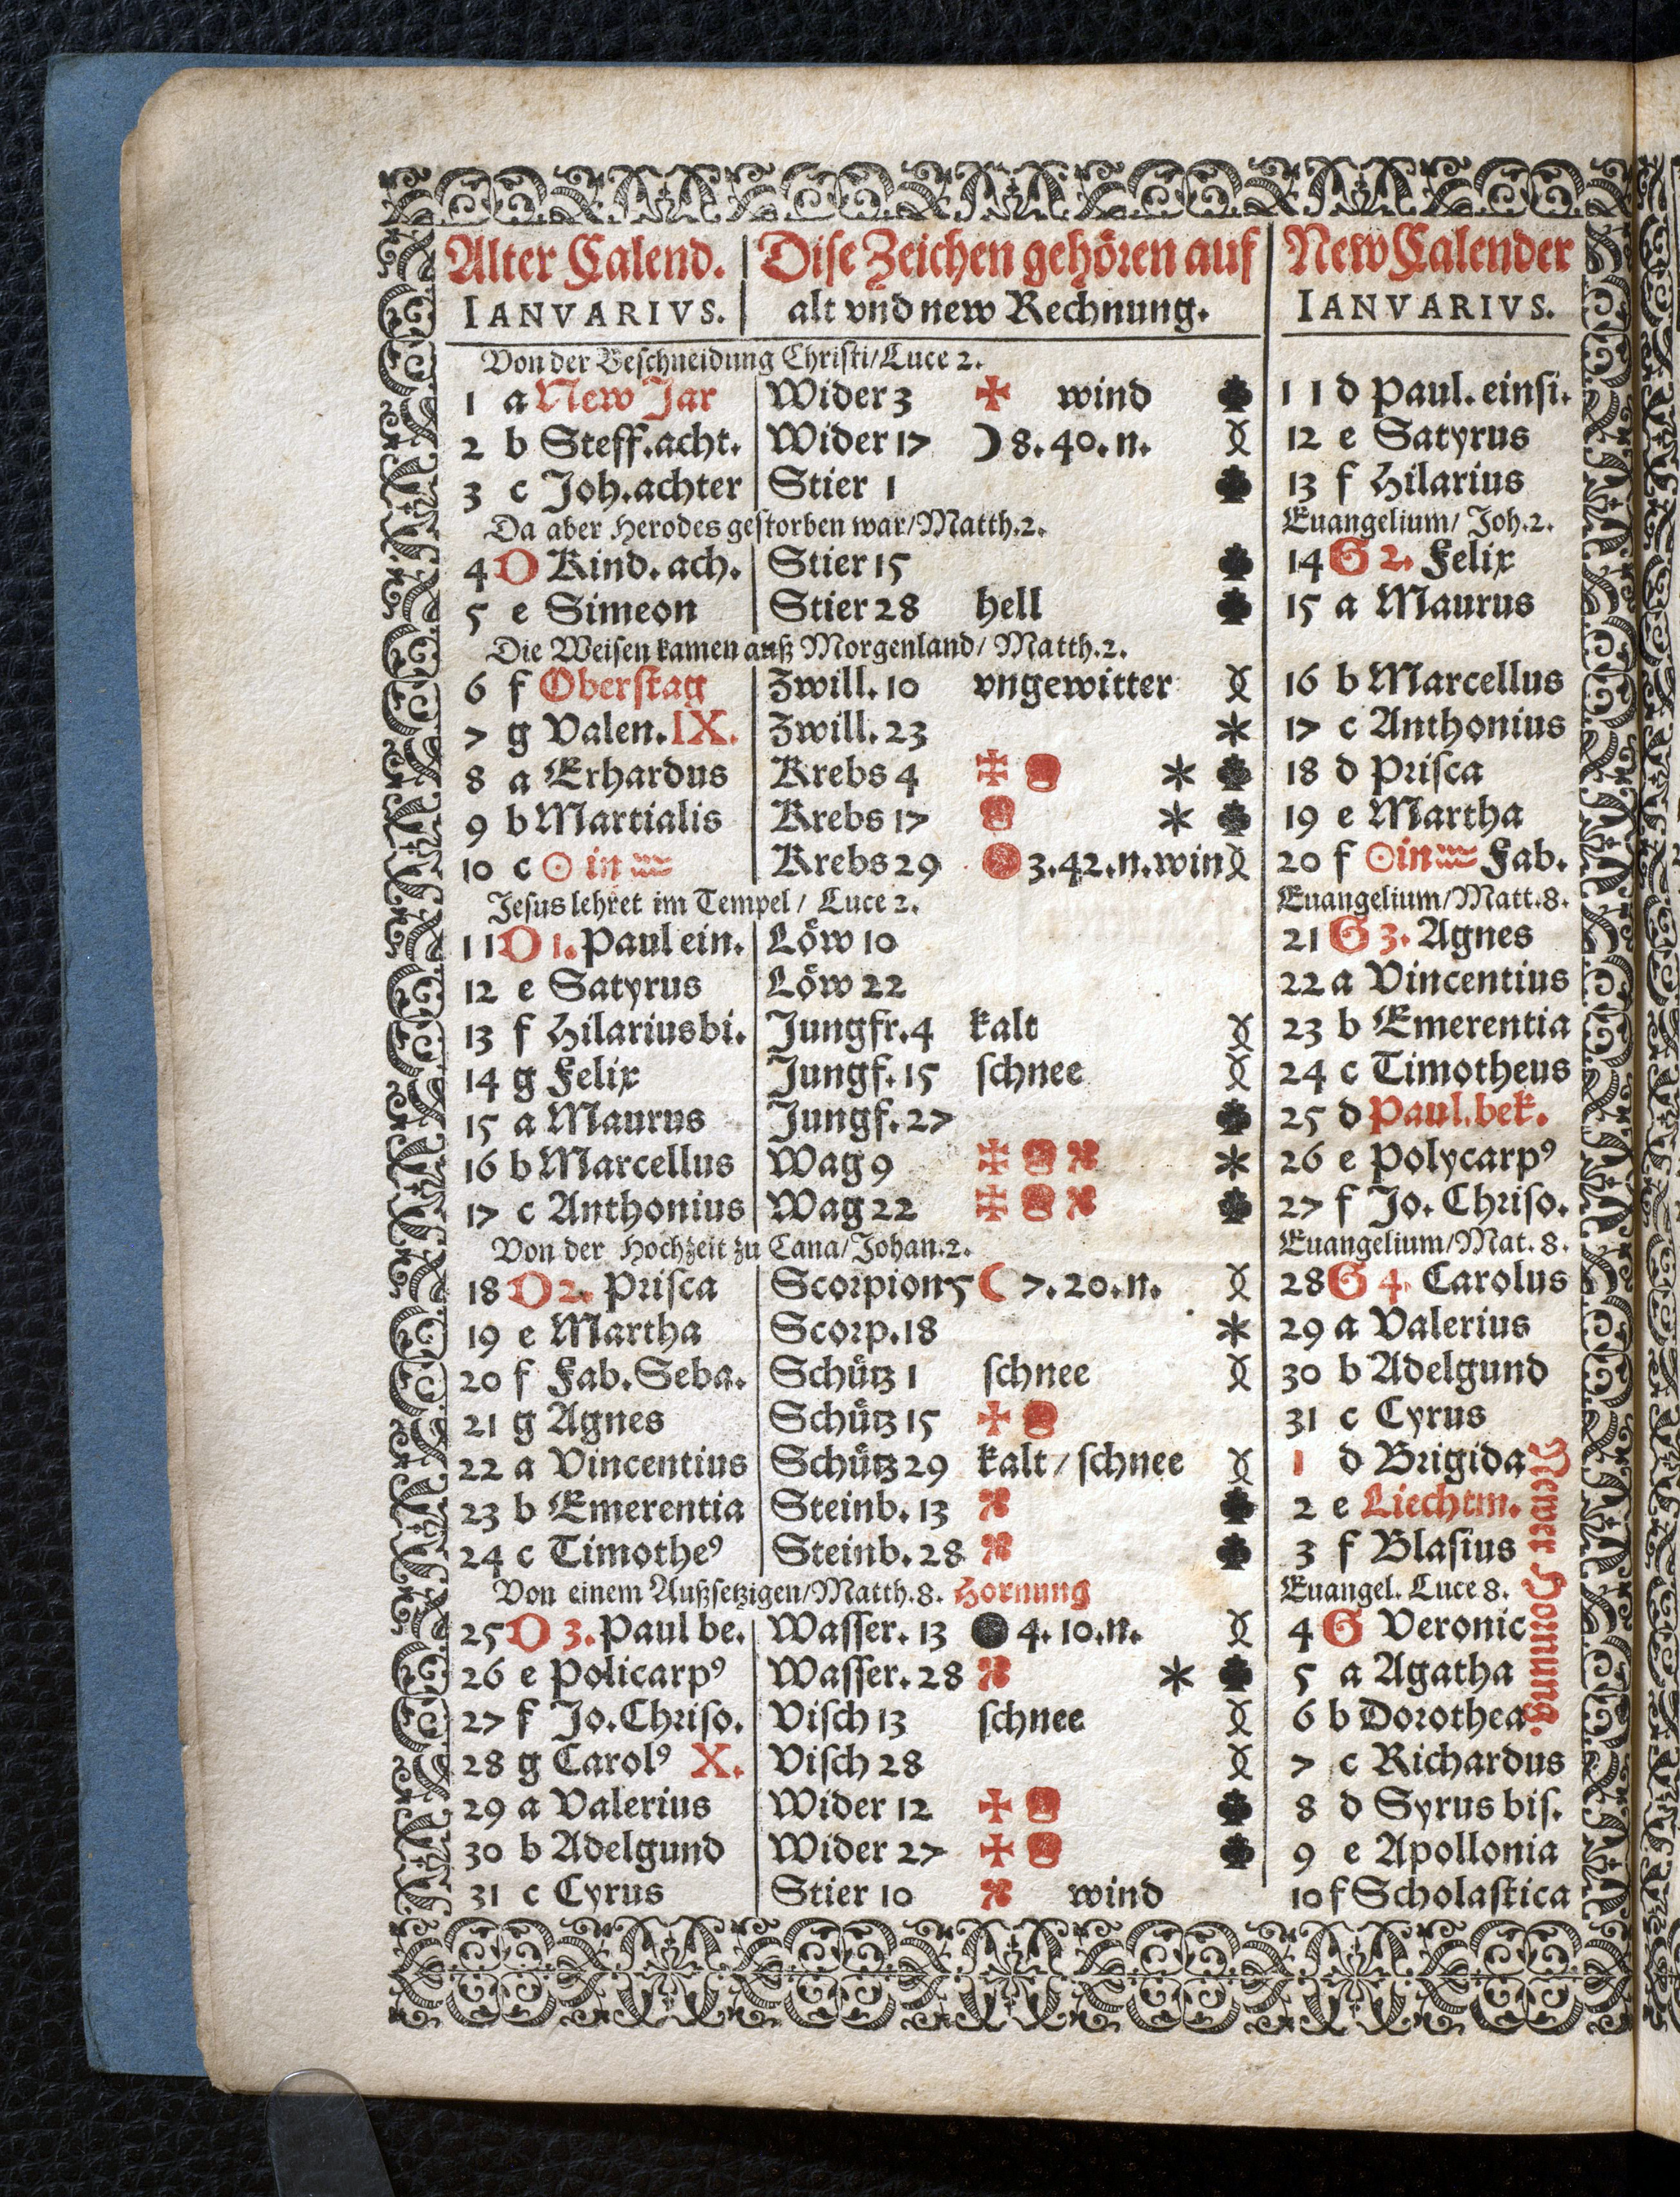 Alter Calend. Dise Zeichen gehören auf New Calender
IANVARIVS. alt vnd new Rechnung. IANVARIVS.
Von der Beschneidung Christi/Luce 2.
1 a New Jar Wider 3 wind 11 d Paul. einsi.
2 b Steff.acht. Wider 17 ☽ 8. 40. n. 12 e Satyrus
3 c Joh.achter Stier 1 13 f Hilarius
Da aber Herodes gestorben war/Matth.2. Euangelium/ Joh.2.
4 D Kind. ach. Stier 15 14 G 2. Felix
5 e Simeon Stier 28 hell 15 a Maurus
Die Weisen kamen auß Morgenland/ Matth.2.
6 f Oberstag Zwill. 10 vngewitter 16 b Marcellus
7 g Valen. IX. Zwill. 23 * 17 c Anthonius
8 a Erhardus Krebs 4 * 18 d Prisca
9 b Martialis Krebs 17 * 19 e Martha
10 c ☉ in ♒ Krebs 29 3.42.n.win 20 f ☉ in ♒ Fab.
Jesus lehret im Tempel / Luce 2. Euangelium/Matt.8.
11 D 1. Paul ein. Löw 10 21 G 3. Agnes
12 e Satyrus Löw 22 22 a Vincentius
13 f Hilarius bi. Jungfr. 4 kalt 23 b Emerentia
14 g Felix Jungf. 15 schnee 24 c Timotheus
15 a Maurus Jungf. 27 25 d Paul. bek.
16 b Marcellus Wag 9 * 26 e Polycarpꝰ
17 c Anthonius Wag 22 27 f Jo. Chriso.
Von der Hochzeit zu Cana/Johan.2. Euangelium/Mat. 8.
18 D 2. Prisca Scorpion 5 ☾ 7. 20. n. 28 G 4. Carolus
19 e Martha Scorp. 18 * 29 a Valerius
20 f Fab. Seba. Schütz 1 schnee 30 b Adelgund
21 g Agnes Schütz 15 31 c Cyrus
22 a Vincentius Schütz 29 kalt / schnee 1 d Brigida
23 b Emerentia Steinb. 13 2 e Liechtm.
24 c Timotheꝰ Steinb. 28 3 f Blasius
Von einem Außsetzigen/Matth.8. Hornung Euangel. Luce 8.
25 D 3. Paul be. Wasser. 13 4. 10. n. 4 G Veronic
26 e Policarpꝰ Wasser. 28 * 5 a Agatha
27 f Jo. Chriso. Visch 13 schnee 6 b Dorothea
28 g Carolꝰ X. Visch 28 7 c Richardus
29 a Valerius Wider 12 8 d Syrus bis.
30 b Adelgund Wider 27 9 e Apollonia
31 c Cyrus Stier 10 wind 10 f Scholastica
Newer Hornung.